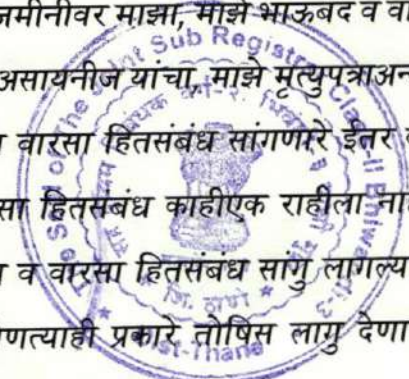 जमीनीवर माझा, माझे भाऊबद व वा
असायनीज यांचा, माझे मृत्युपत्राअन
वारसा हितसंबंध सांगणारे ईतर
सा हितसंबंध काहीएक राहीला ना
व वारसा हितसंबंध सांगु लागल्या
णत्याही प्रकारे तोषिस लागु देणा
The Seal of The Joint Sub Registrar Class-II Bhiwandi-3
जि. ठाणे
Dist-Thane